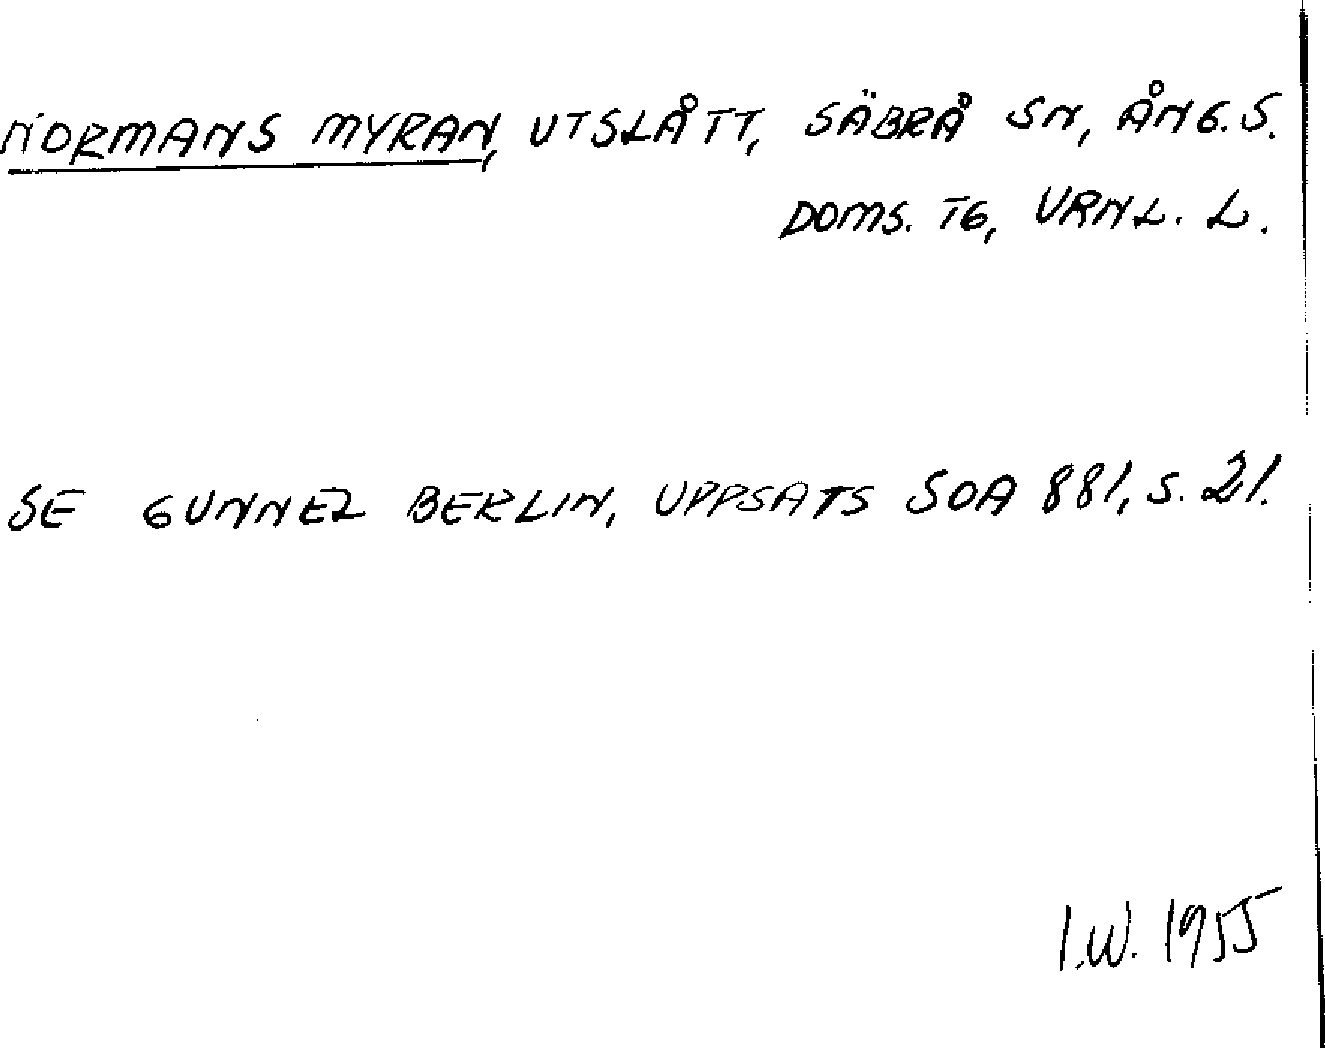 NORMANS MYRAN, UTSLÅTT, SÄBRÅ SN, ÅNG. S.
DOMS. TG, VRNL. L.
SE GUNNEL BERLIN, UPPSATS SOA 881, S. 21.
I.W. 1955